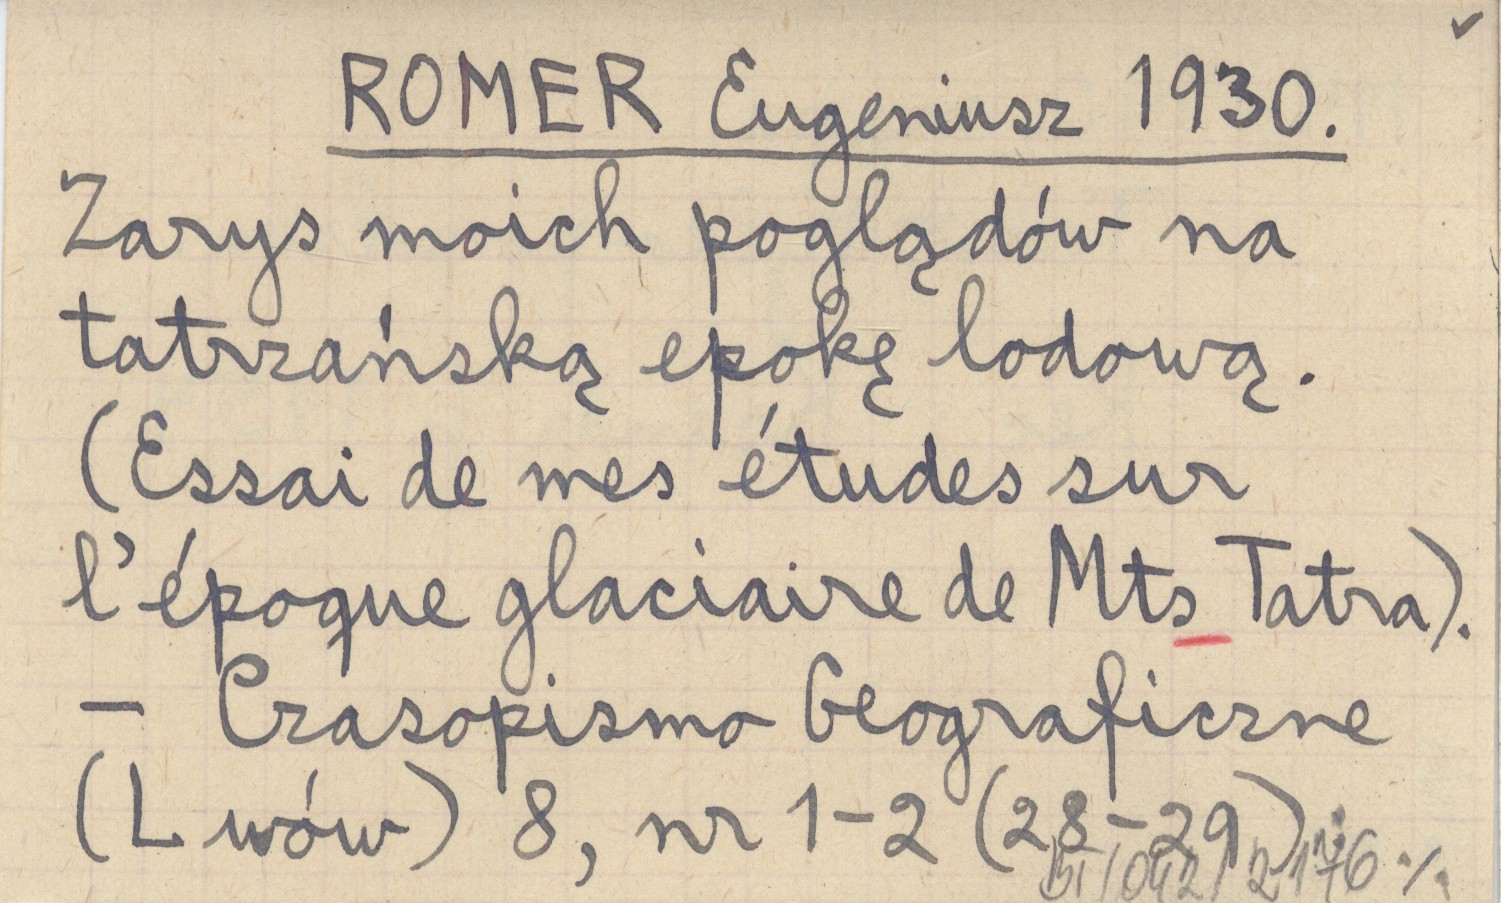 ROMER Eugeniusz 1930.
Zarys moich poglądów na
tatrzańską epokę lodową.
(Essai de mes études sur
l'époque glaciaire de Mts Tatra).
– Czasopismo Geograficzne
(Lwów) 8, nr 1-2 (28-29):